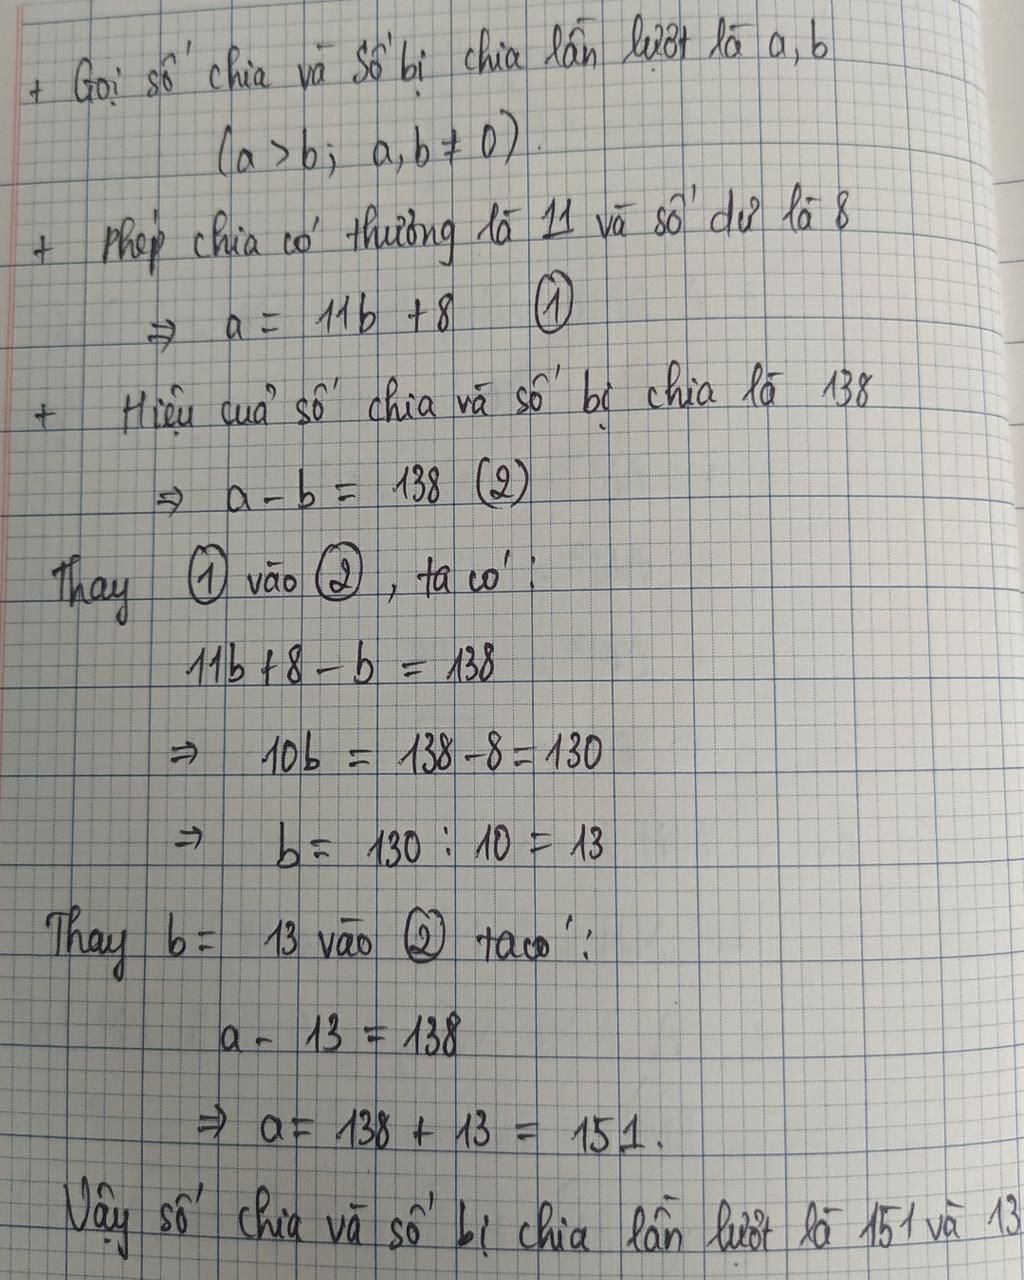 + Gọi số chia và số bị chia lần lượt là a, b
(a > b; a, b ≠ 0).
+ Phép chia có thương là 11 và số dư là 8
⇒ a = 11b + 8 ①
+ Hiệu quả số chia và số bị chia là 138
⇒ a - b = 138 (2)
Thay ① vào ②, ta có:
11b + 8 - b = 138
⇒ 10b = 138 - 8 = 130
⇒ b = 130 : 10 = 13
Thay b = 13 vào ② ta có:
a - 13 = 138
⇒ a = 138 + 13 = 151.
Vậy số chia và số bị chia lần lượt là 151 và 13